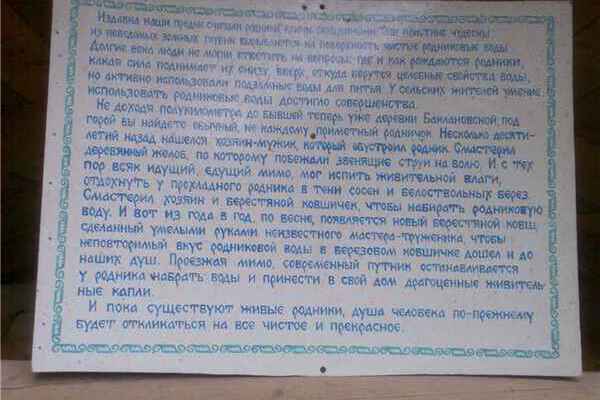 Издавна наши предки считали родники, ключи священными. Еще бы, такие чудеса:
из неведомых земных глубин вырывается на поверхность чистые родниковые воды.
Долгие века люди не могли ответить на вопросы: где и как рождаются родники,
какая сила поднимает их снизу вверх, откуда берутся целебные свойства воды,
но активно использовали подземные воды для питья. У сельских жителей умение
использовать родниковые воды достигло совершенства.
Не доходя полукилометра до бывшей теперь уже деревни Баклановской, под
горой вы найдете обычный, не каждому приметный родничок. Несколько десяти-
летий назад нашелся хозяин-мужик, который обустроил родник. Смастерил
деревянный желоб, по которому побежали звенящие струи на волю. И с тех
пор всяк идущий, едущий мимо, мог испить живительной влаги,
отдохнуть у прохладного родника в тени сосен и белоствольных берез.
Смастерил хозяин и берестяной ковшичек, чтобы набирать родниковую
воду. И вот из года в год, по весне, появляется новый берестяной ковш,
сделанный умелыми руками неизвестного мастера-труженика, чтобы
неповторимый вкус родниковой воды в березовом ковшичке дошел и до
наших душ. Проезжая мимо, современный путник останавливается
у родника набрать воды и принести в свой дом драгоценные живитель-
ные капли.
И пока существуют живые родники, душа человека по-прежнему
будет откликаться на все чистое и прекрасное.